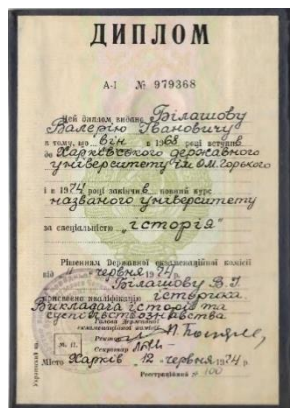 ДИПЛОМ
А-І № 979368
Цей диплом видано Білашову
Валерію Івановичу
в тому, що він в 1968 році вступив
до Харківського державного
університету ім. О.М. Горького
і в 1974 році закінчив повний курс
названого університету
за спеціальністю „історія"
Рішенням Державної екзаменаційної комісії
від червня 1974
Білашову В. І.
присвоєно кваліфікацію історика.
Викладача історії та
суспільствознавства
Голова Державної
екзаменаційної комісії
Ректор
Секретар
М. П.
Місто Харків 12 червня 1974 р.
Реєстраційний № 100